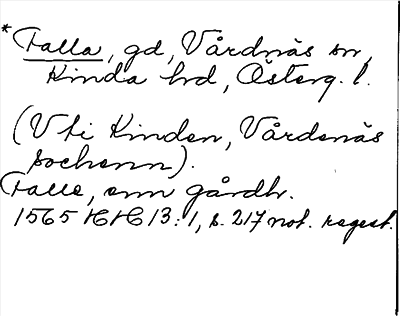 * Falla, gd, Vårdnäs sn,
Kinda hd, Österg. l.
(Vti Kinden, Vårdenäs
sochenn).
Falle, enn gårdh.
1565 HH 13:1, s. 217 not. regest.